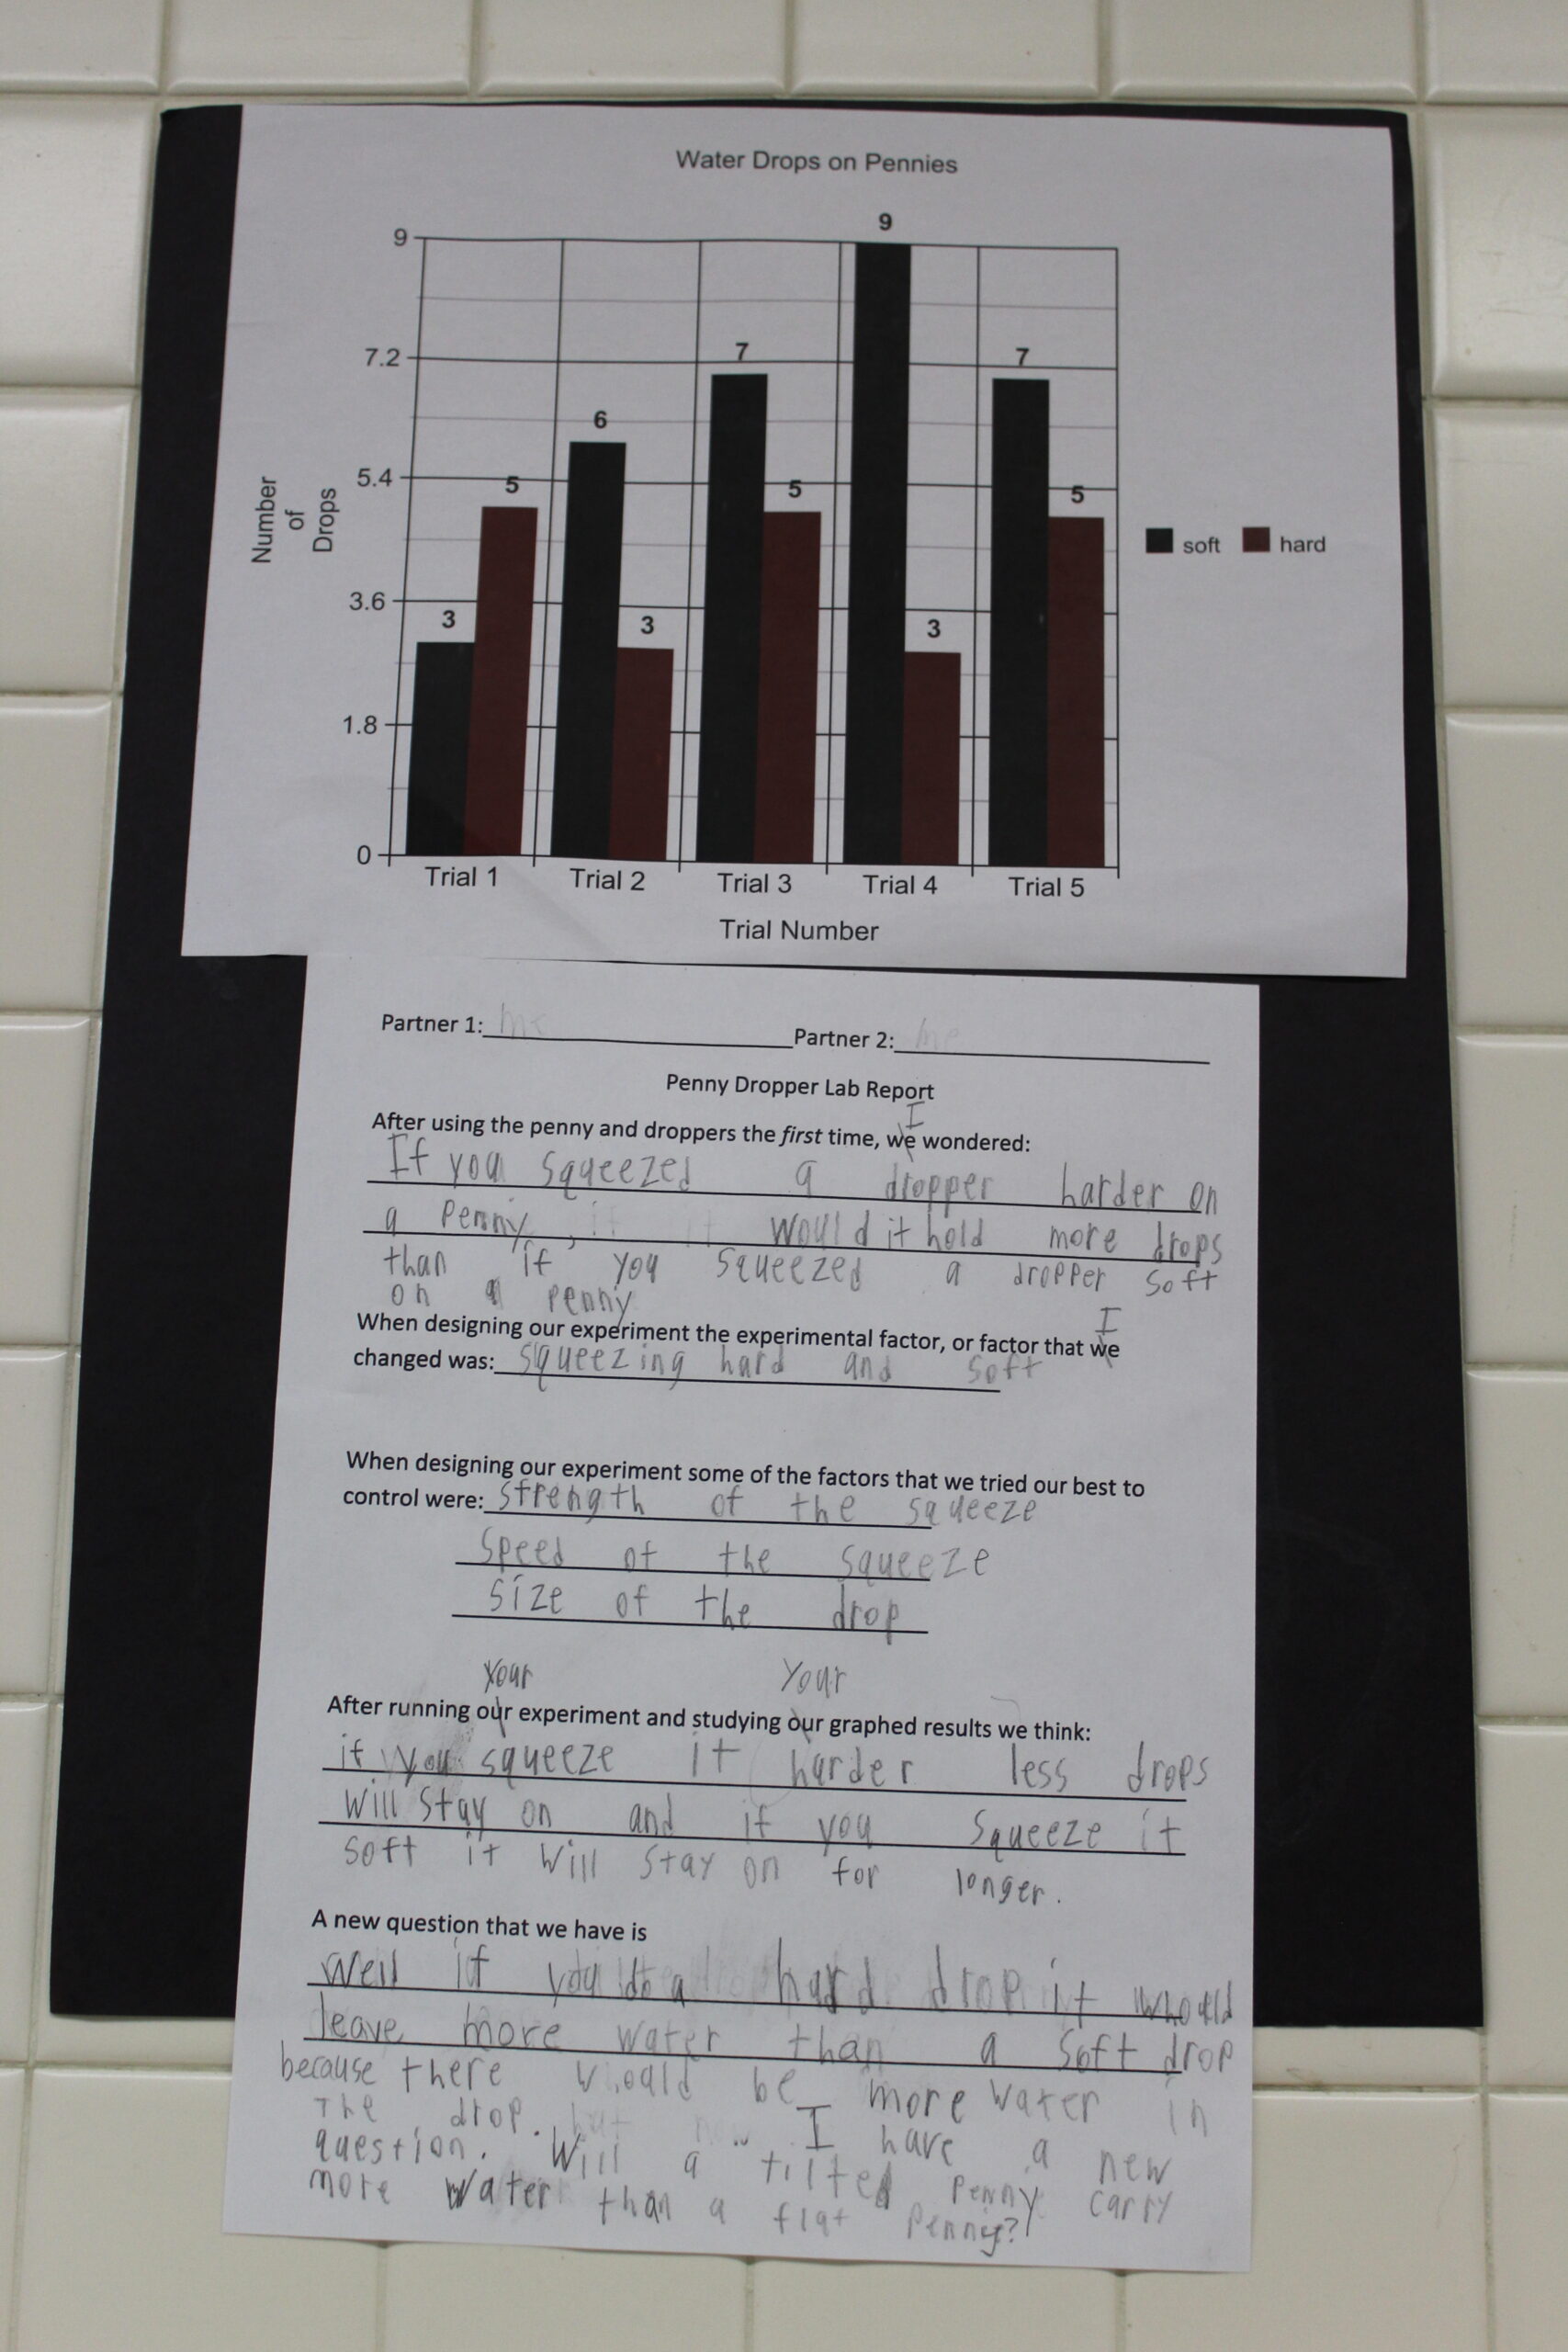 Water Drops on Pennies
9
9
7.2
7
7
6
5.4
5
5
5
3.6
3
3
3
1.8
0
Number
of
Drops
soft hard
Trial 1 Trial 2 Trial 3 Trial 4 Trial 5
Trial Number
Partner 1: me Partner 2: me
Penny Dropper Lab Report
I
After using the penny and droppers the first time, we wondered:
If you squeezed a dropper harder on
a penny, would it hold more drops
than if you squeezed a dropper soft
on a penny
I
When designing our experiment the experimental factor, or factor that we
changed was: squeezing hard and soft
When designing our experiment some of the factors that we tried our best to
control were: strength of the squeeze
speed of the squeeze
size of the drop
your your
After running our experiment and studying our graphed results we think:
if you squeeze it harder less drops
will stay on and if you squeeze it
soft it will stay on for longer.
A new question that we have is
well if you do a hard drop it whould
leave more water than a soft drop
because there whould be more water in
The drop. I have a new
question. Will a tilted penny carry
more water than a flat penny?